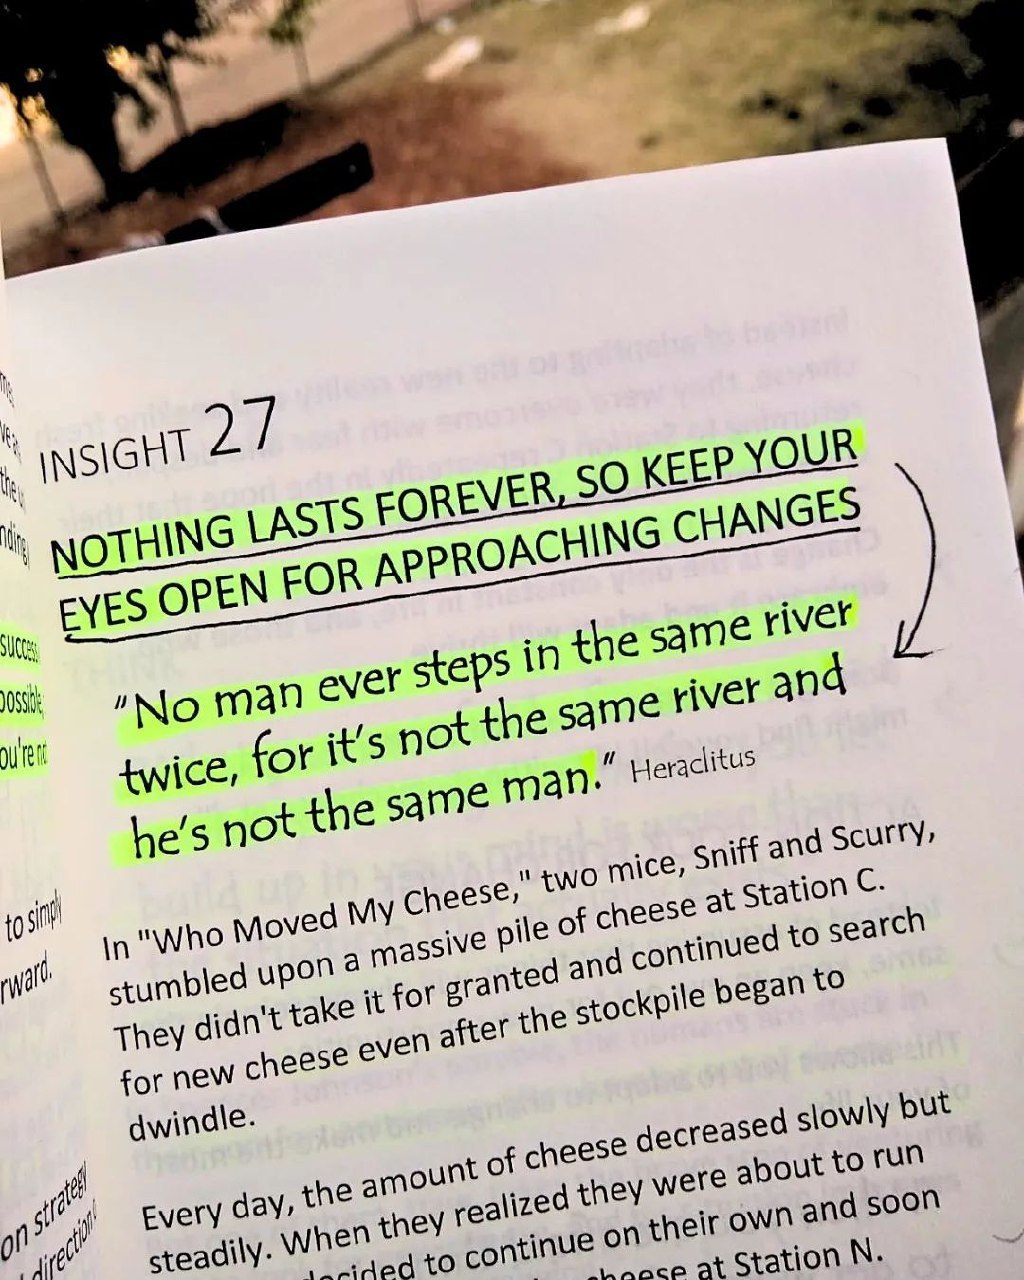 INSIGHT 27
NOTHING LASTS FOREVER, SO KEEP YOUR
EYES OPEN FOR APPROACHING CHANGES
"No man ever steps in the same river
twice, for it's not the same river and
he's not the same man." Heraclitus
In "Who Moved My Cheese," two mice, Sniff and Scurry,
stumbled upon a massive pile of cheese at Station C.
They didn't take it for granted and continued to search
for new cheese even after the stockpile began to
dwindle.
Every day, the amount of cheese decreased slowly but
steadily. When they realized they were about to run
decided to continue on their own and soon
cheese at Station N.
success
possible
you're
to simply
on strategy
direction